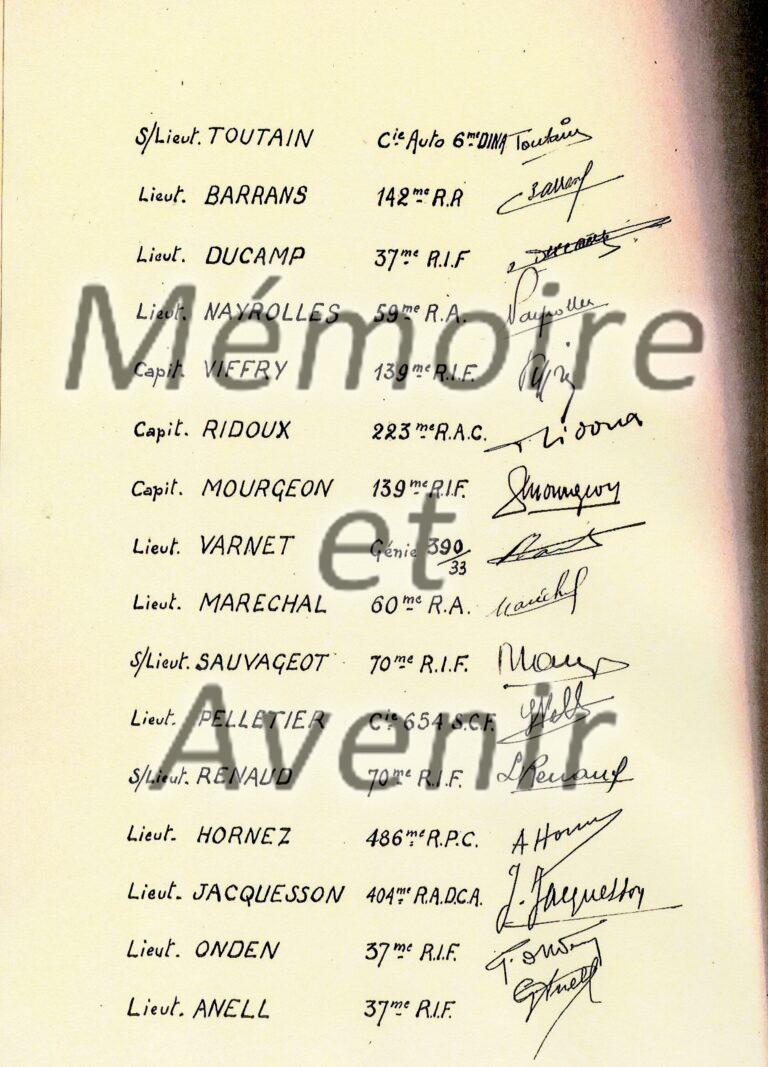 S/Lieut. TOUTAIN Cie Auto 6me DINA Toutain
Lieut. BARRANS 142me R.R
Lieut. DUCAMP 37me R.I.F
Lieut. NAYROLLES 59me R.A. Nayrolles
Mémoire
Capit. VIFFRY 139me R.I.F.
Capit. RIDOUX 223me R.A.C.
Capit. MOURGEON 139me R.I.F. Mourgeon
et
Lieut. VARNET Génie 390/33
Lieut. MARECHAL 60me R.A. Maréchal
S/Lieut. SAUVAGEOT 70me R.I.F.
Avenir
Lieut. PELLETIER Cie 654 S.C.F.
S/Lieut. RENAUD 70me R.I.F. Renaud
Lieut. HORNEZ 486me R.P.C. A Hornez
Lieut. JACQUESSON 404me R.A.D.C.A. J. Jacquesson
Lieut. ONDEN 37me R.I.F.
Lieut. ANELL 37me R.I.F. Anell